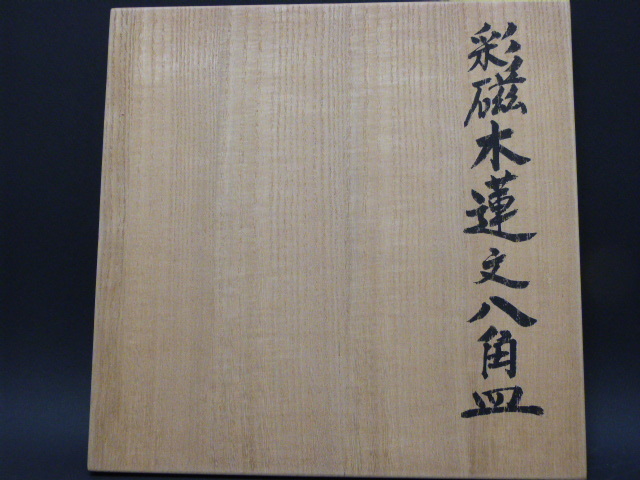 彩磁木蓮文八角皿